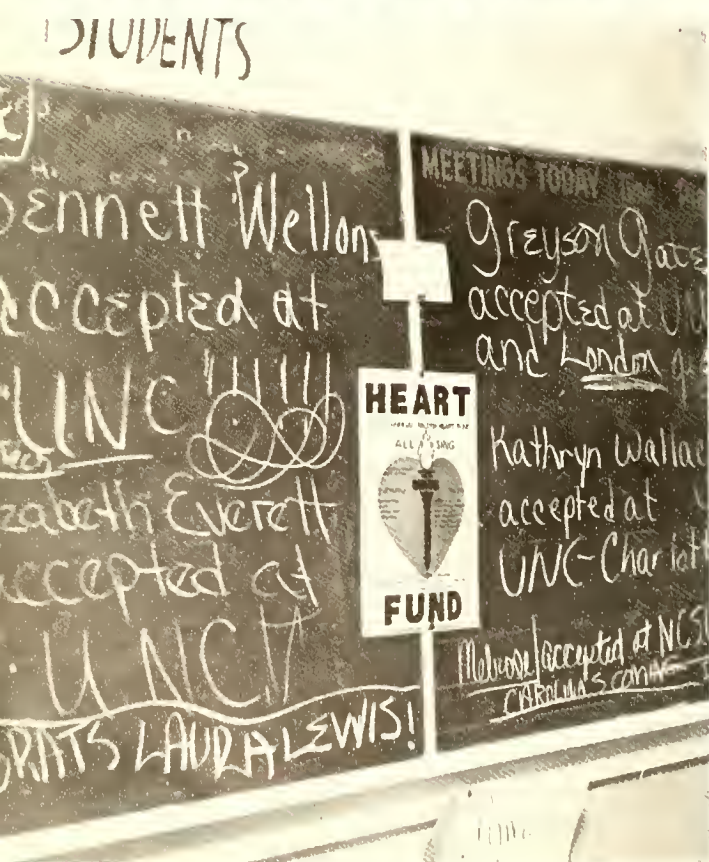 STUDENTS
Bennett Wellons
accepted at
UNC !!!!!
Elizabeth Everett
accepted at
UNC!!
CONGRATS LAURA LEWIS!
HEART
FUND
MEETINGS TODAY
Greyson Gate
accepted at U
and London
Kathryn Wallac
accepted at
UNC-Charlot
Melrose accepted at NCS
CAROLINA'S COMING